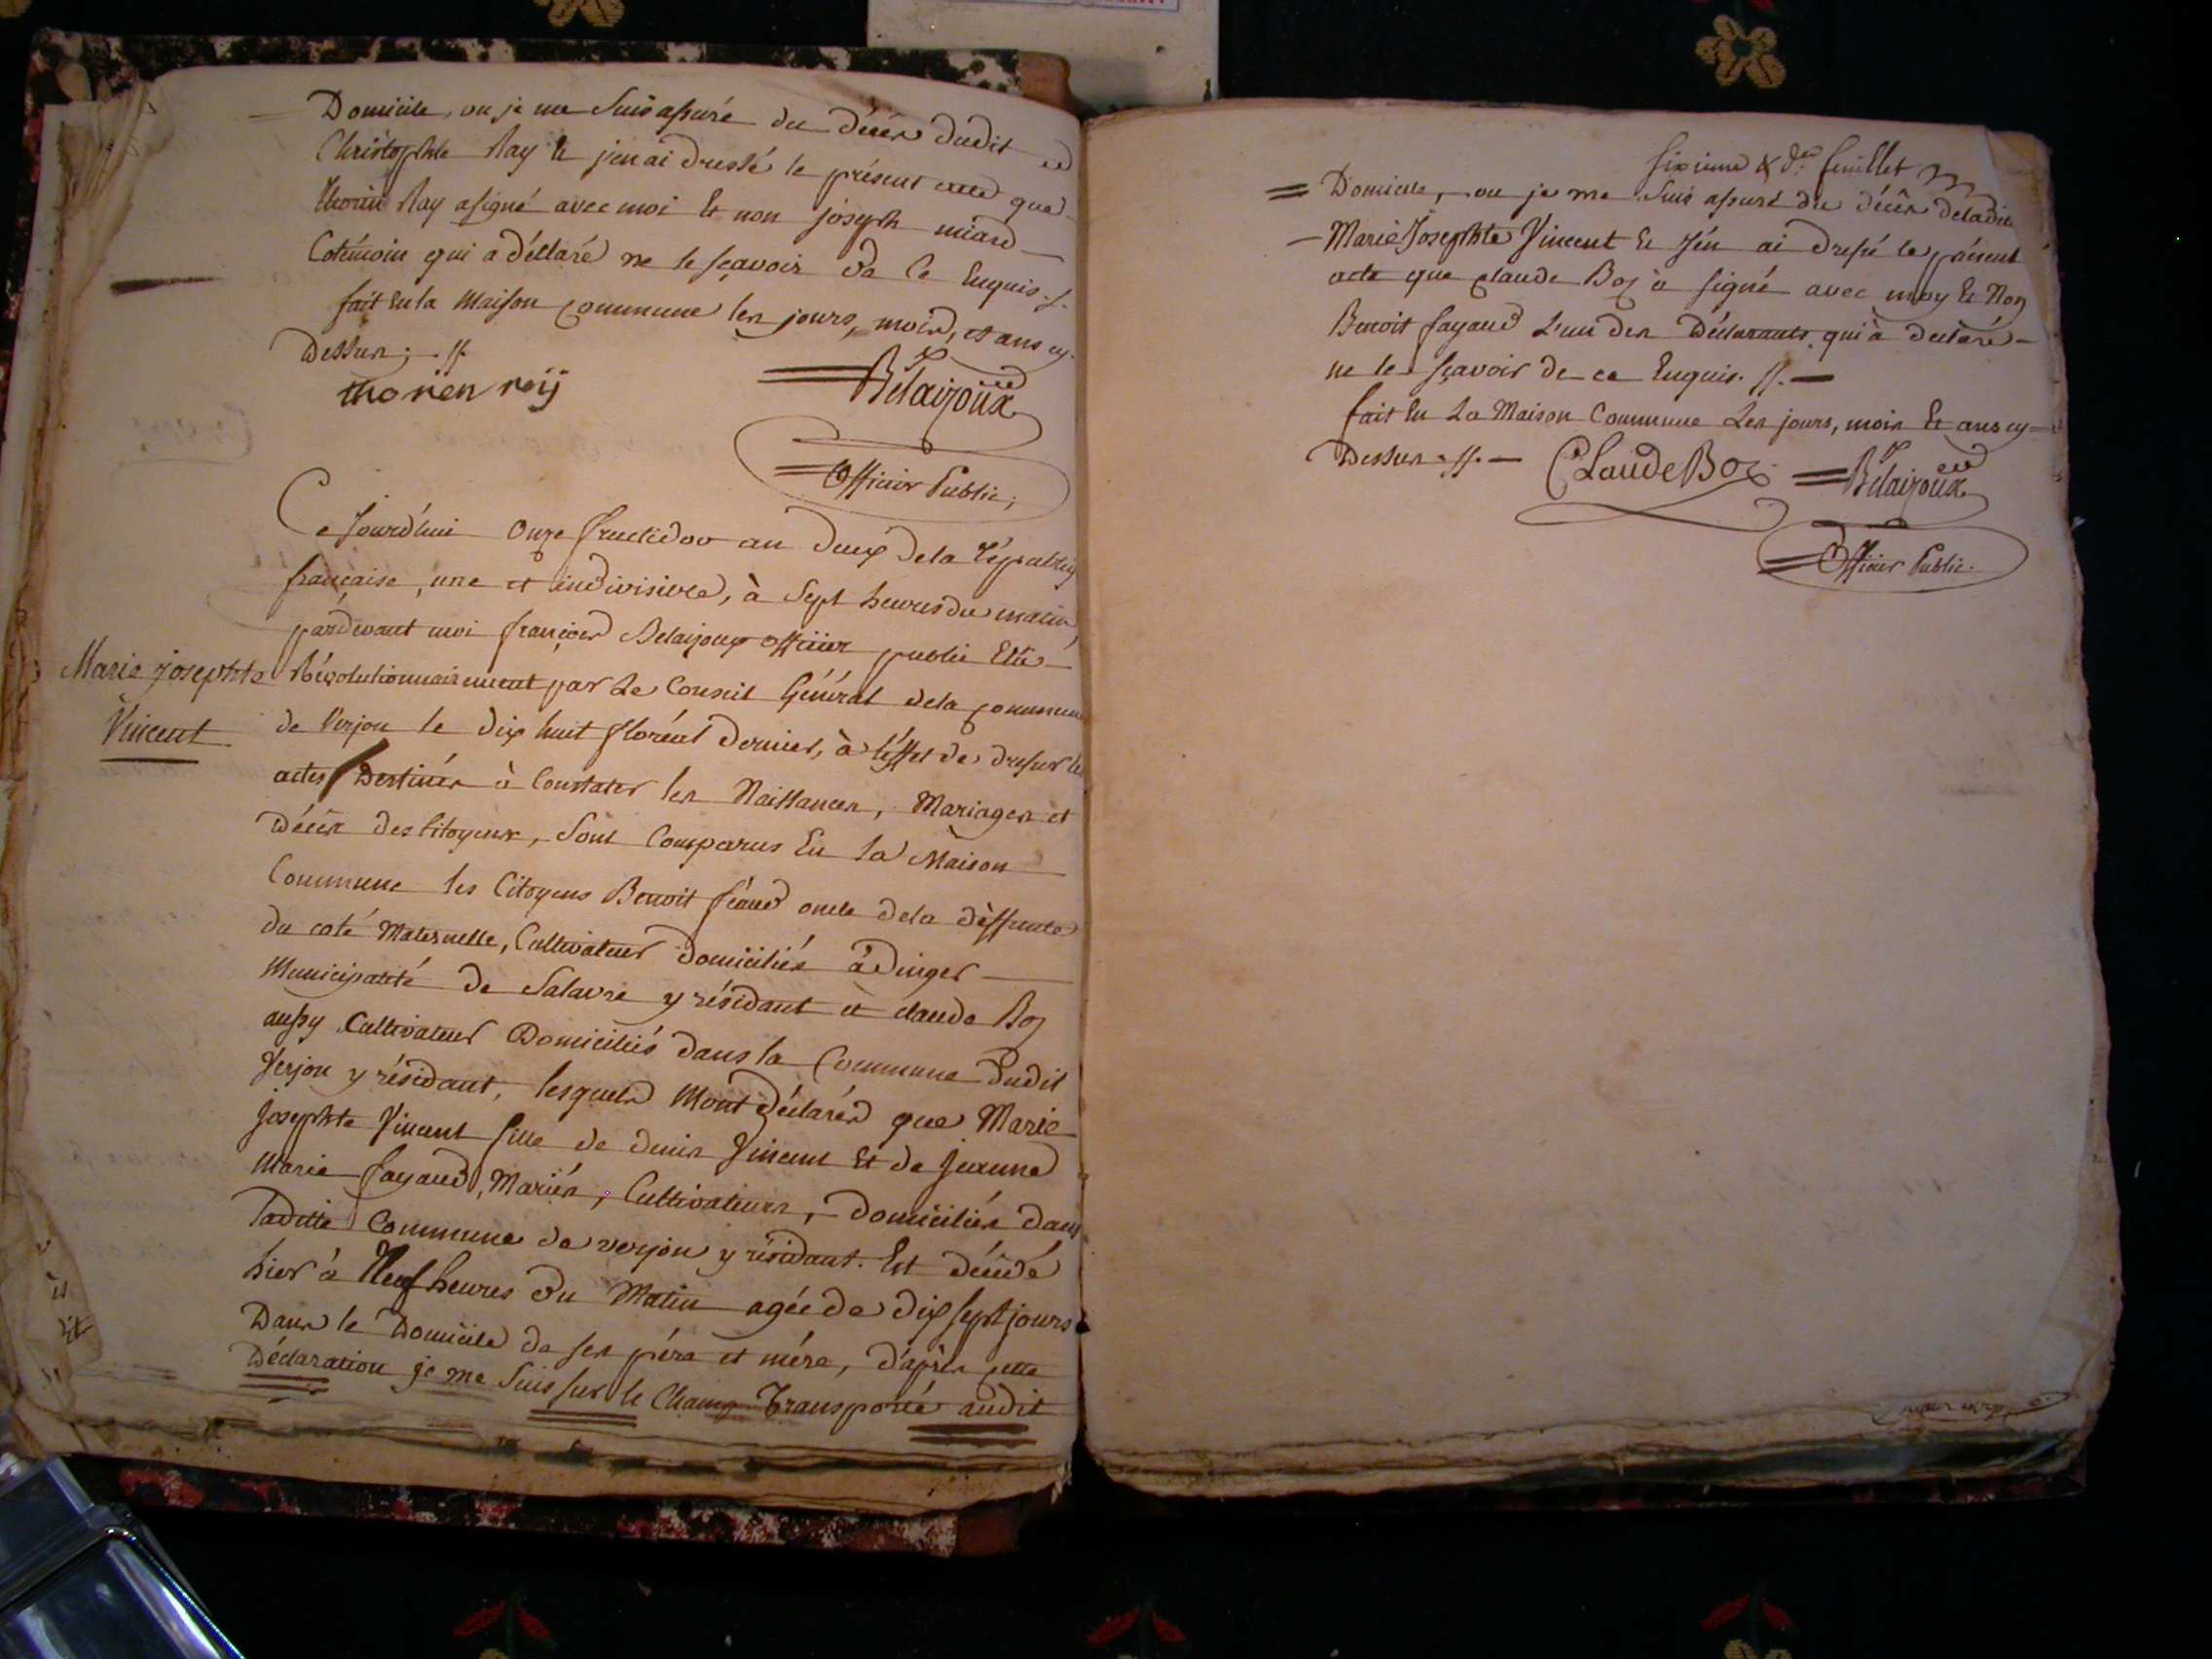 Domicile, ou je me Suis assuré du décès dudit
Christophle Ray et j'en ai dressé le présent acte que
thorin Ray a signé avec moi Et non joseph miard
Cotémoin qui a déclaré ne le sçavoir de ce Enquis .//.
fait En la Maison Commune les jours, mois, et ans cy-
Dessus ; .//.
thorien reij
Bélaijoux
Officier Public ;
Ce Jourd'hui Onze fructidor an deux de la républiq
française, une et indivisible, à Sept heures du matin,
pardevant moi françois Belaijoux officier public Elû
Marie josephte
Vincent
Révolutionnairement par Le Conseil Général de la Commune
de Verjon le dix huit floréal dernier, à l'éffet de dresser les
actes Destinés à Constater les Naissances, Mariages et
Décès des Citoyens, Sont Comparus En la Maison
Commune les Citoyens Benoit féaud oncle de la déffunte
du coté Maternelle, Cultivateur domiciliés à dinger
Municipalité de Salavre y résidant et claude Boz
aussy Cultivateur Domiciliés dans la Commune dudit
Verjon y résidant, lesquels M'ont déclarés que Marie
josephte Vincent fille de denis Vincent Et de Jeanne
Marie fayaud, Mariés, Cultivateurs, domiciliés dans
laditte Commune de verjon y résidant. Est décédé
hier à Neuf heures du Matin agée de dix sept jours
Dans le Domicile de ses pére et mére, d'après cette
Déclaration je me Suis sur le Champ Transporté audit
sixieme & der feuillet
Domicile, ou je me Suis assuré du décès de ladite
Marie Josephte Vincent Et J'én ai dressé le présent
acte que claude Boz à signé avec moy Et Non
Benoit fayaud L'un des Déclarants qui à déclaré
ne le sçavoir de ce Enquis .//.
fait En La Maison Commune Les jours, mois Et ans cy-
Dessus .//.
CLaude Boz
Bélaijoux
Officier Public.